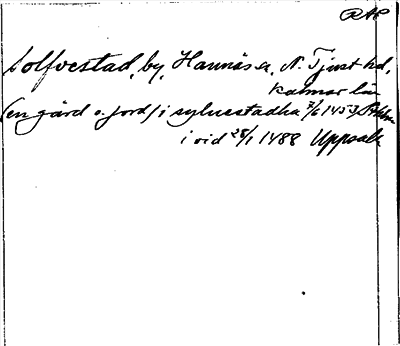 RAP
Solfvestad, by, Hannäs sn, N. Tjust hd,
Kalmar län
(en gård o. jord) i syluestadha 7/6 1453 Sthlm
i vid 28/1 1488 Uppsala